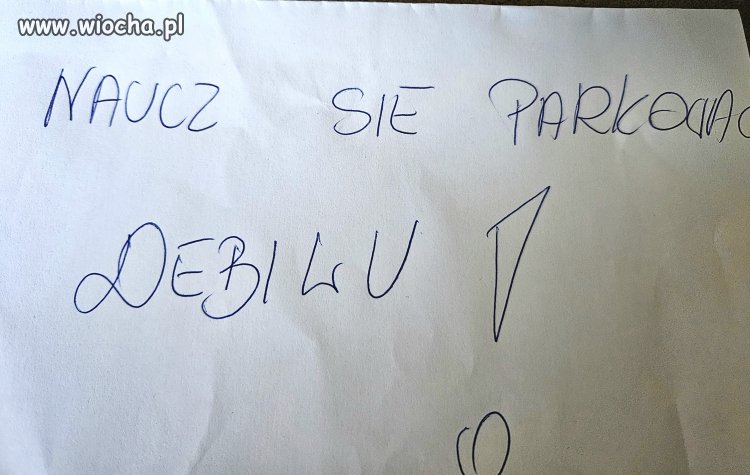 www.wiocha.pl
NAUCZ SIE PARKOWAĆ
DEBILU !